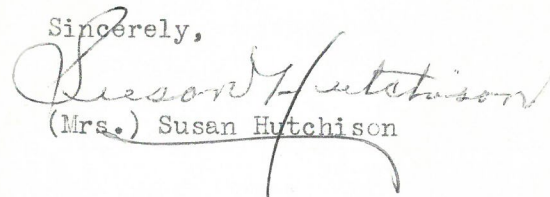 Sincerely,
Susan Hutchison
(Mrs.) Susan Hutchison